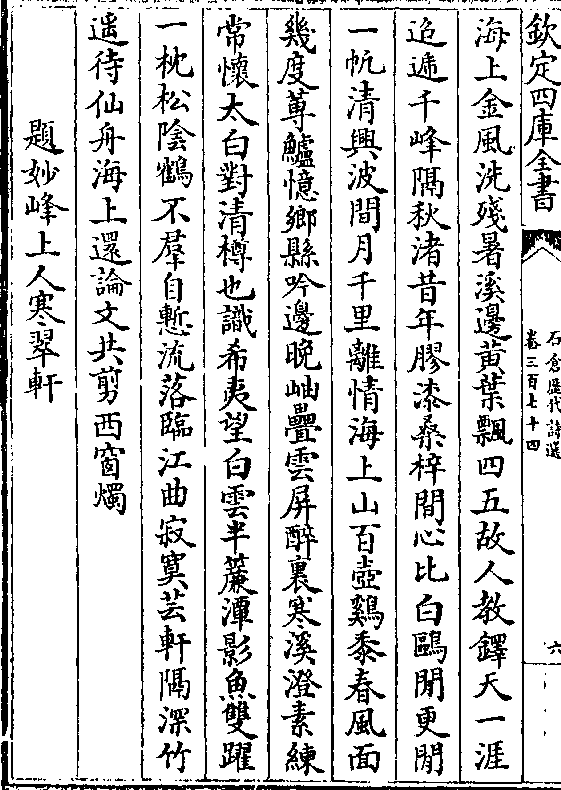 欽定四庫全書
石倉歷代詩選
卷三百七十四
六
海上金風洗殘暑溪邊黃葉飄四五故人教鐸天一涯
迢遞千峰隔秋渚昔年膠漆桑梓間心比白鷗閒更閒
一帆清興波間月千里離情海上山百壺鷄黍春風面
幾度蓴鱸憶鄉縣吟邊晚岫疊雲屏醉裏寒溪澄素練
常懷太白對清樽也識希夷望白雲半簾潭影魚雙躍
一枕松陰鶴不羣自慙流落臨江曲寂寞芸軒隔深竹
遥待仙舟海上還論文共剪西窗燭
題妙峰上人寒翠軒